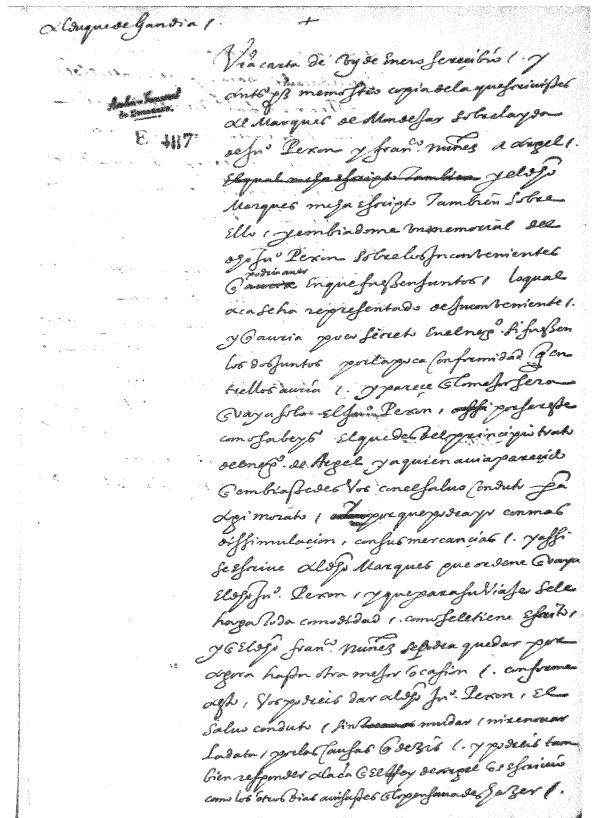 Al duque de Gandia /.
+
V̄ra carta de vj de Enero se recibio /. y
Archivo General
de Simancas
E 487
memoria copia de la que scrivistes
al Marques de Mondejar sobre la yda
de Ju.º Pexon y fran.co nuñez a Argel /.
El qual me ha escripto Tambien y el dho
Marques me ha Escripto Tambien sobre
Ello / y embiadome un memorial del
dho Ju.º Pexon sobre los Inconvenientes
podrian aver
En que fuessen juntos / lo qual
aca se ha representado de Inconveniente /.
y q auria poco secreto En el neg.º si fuessen
los dos juntos por la poca conformidad q en
trellos auria /. y pareçe q lo mejor sera
q vaya solo el Ju.º Pexon / por ser este
como sabeys el que desdel principio trato
del neg.º de Argel y a quien avia pareçido
q embiassedes vos con el salvo conduto pa
api morato / porque podra yr con mas
dissimulaçion / con sus mercançias /. y assi
se escrive al dho Marques que ordene q vaya
El dho Ju.º Pexon / y que para su viaje se le
haga toda comodidad / como se le tiene escrito /
y q El dho fran.co Nuñez se podra quedar por
agora hasta otra mejor ocasion /. conforme
a esto / Vos podreis dar al dho Ju.º Pexon / El
salvo conduto / sin mudar / ni renovar
La data / por las causas q dezis /. y podreis tam
bien responder al q El Rey de argel os escrivio
como los otros dias avisastes q lo pensavades hazer /.